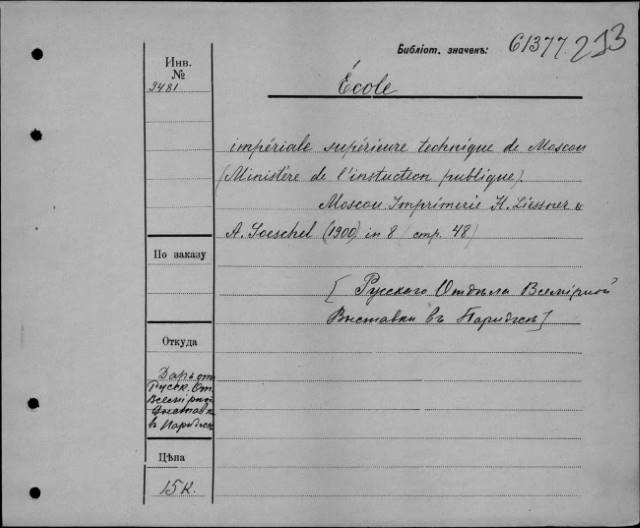 Библіот. значекъ: 61377. 293
Инв.
№
2481
École
impériale supérieure technique de Moscou
(Ministère de l'instuction publique).
Moscou Imprimerie H. Liessner u
A. Goeschel (1900) in 8 (стр. 48)
По заказу
[Русскаго Отдѣла Всемірной
Выставки въ Парижѣ]
Откуда
Даръ отъ
Русск. От.
Всемірной
Выставки
въ Парижѣ
Цѣна
15 к.